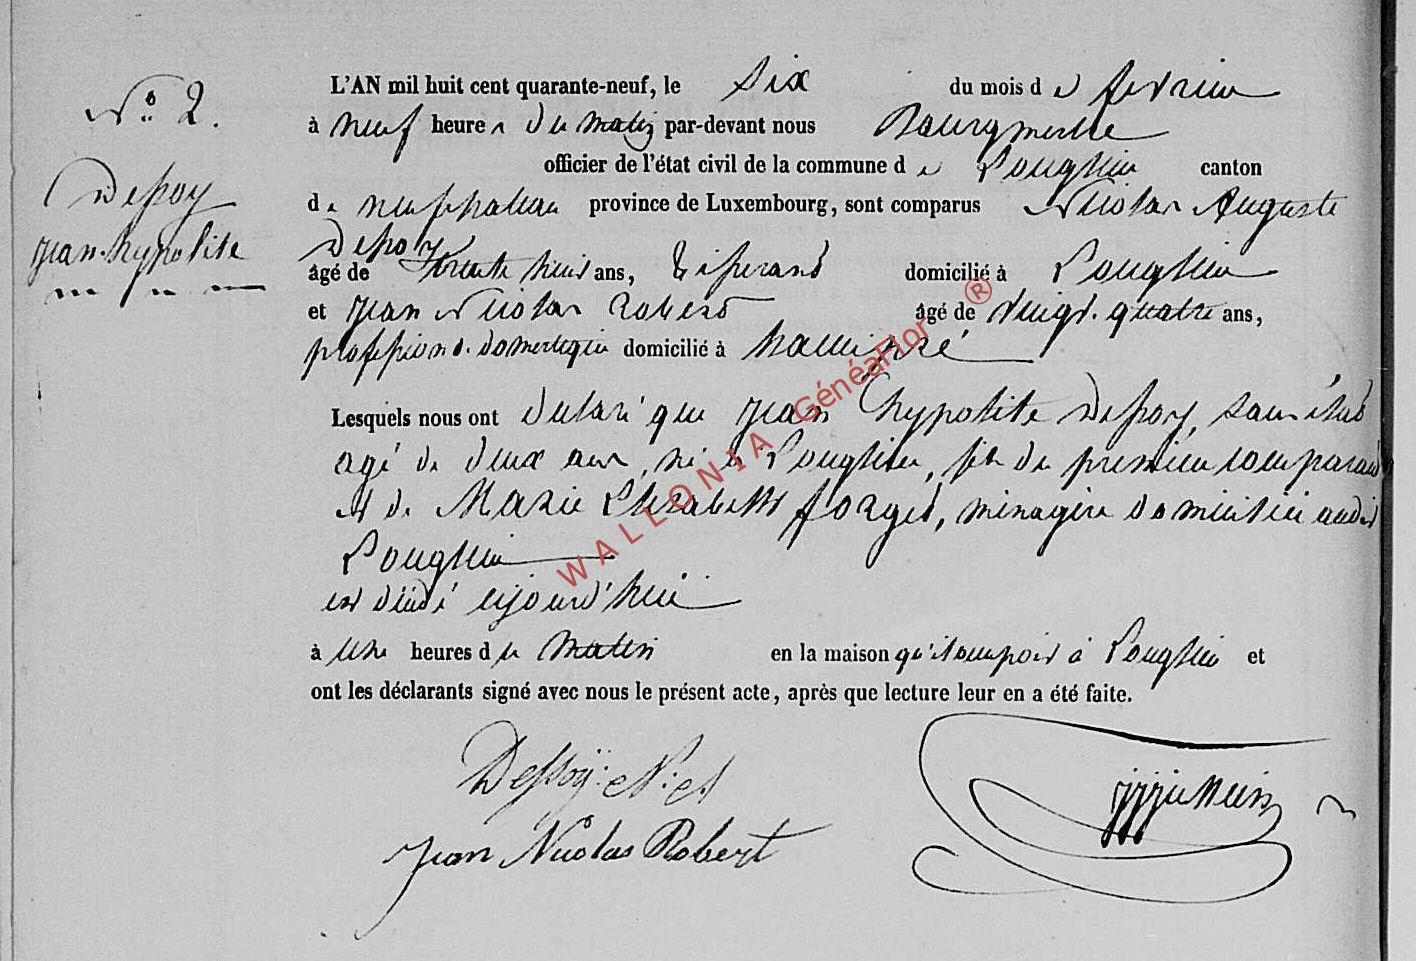 N° 2.
Depoy
jean hypolite
L'AN mil huit cent quarante-neuf, le six du mois de fevrier
à neuf heures du matin par-devant nous Bourgmestre
officier de l'état civil de la commune de Longlier canton
de neufchateau province de Luxembourg, sont comparus Nicolas Auguste
Depoy
âgé de trente huit ans, tisserand domicilié à Longlier
et jean Nicolas Robert âgé de vingt-quatre ans,
profession de domestique domicilié à hamipré
Lesquels nous ont déclaré que jean hypolite Depoy, sans état
agé de deux ans, né à Longlier, fils du premier comparant
et de Marie Elizabeth forget, ménagère domiciliée audit
Longlier
est décédé aujourd'hui
à une heures du matin en la maison qu'il occupoit à Longlier et
ont les déclarants signé avec nous le présent acte, après que lecture leur en a été faite.
Dessoÿ
Jean Nicolas Robert
WALLONIA GénéaFlor ®